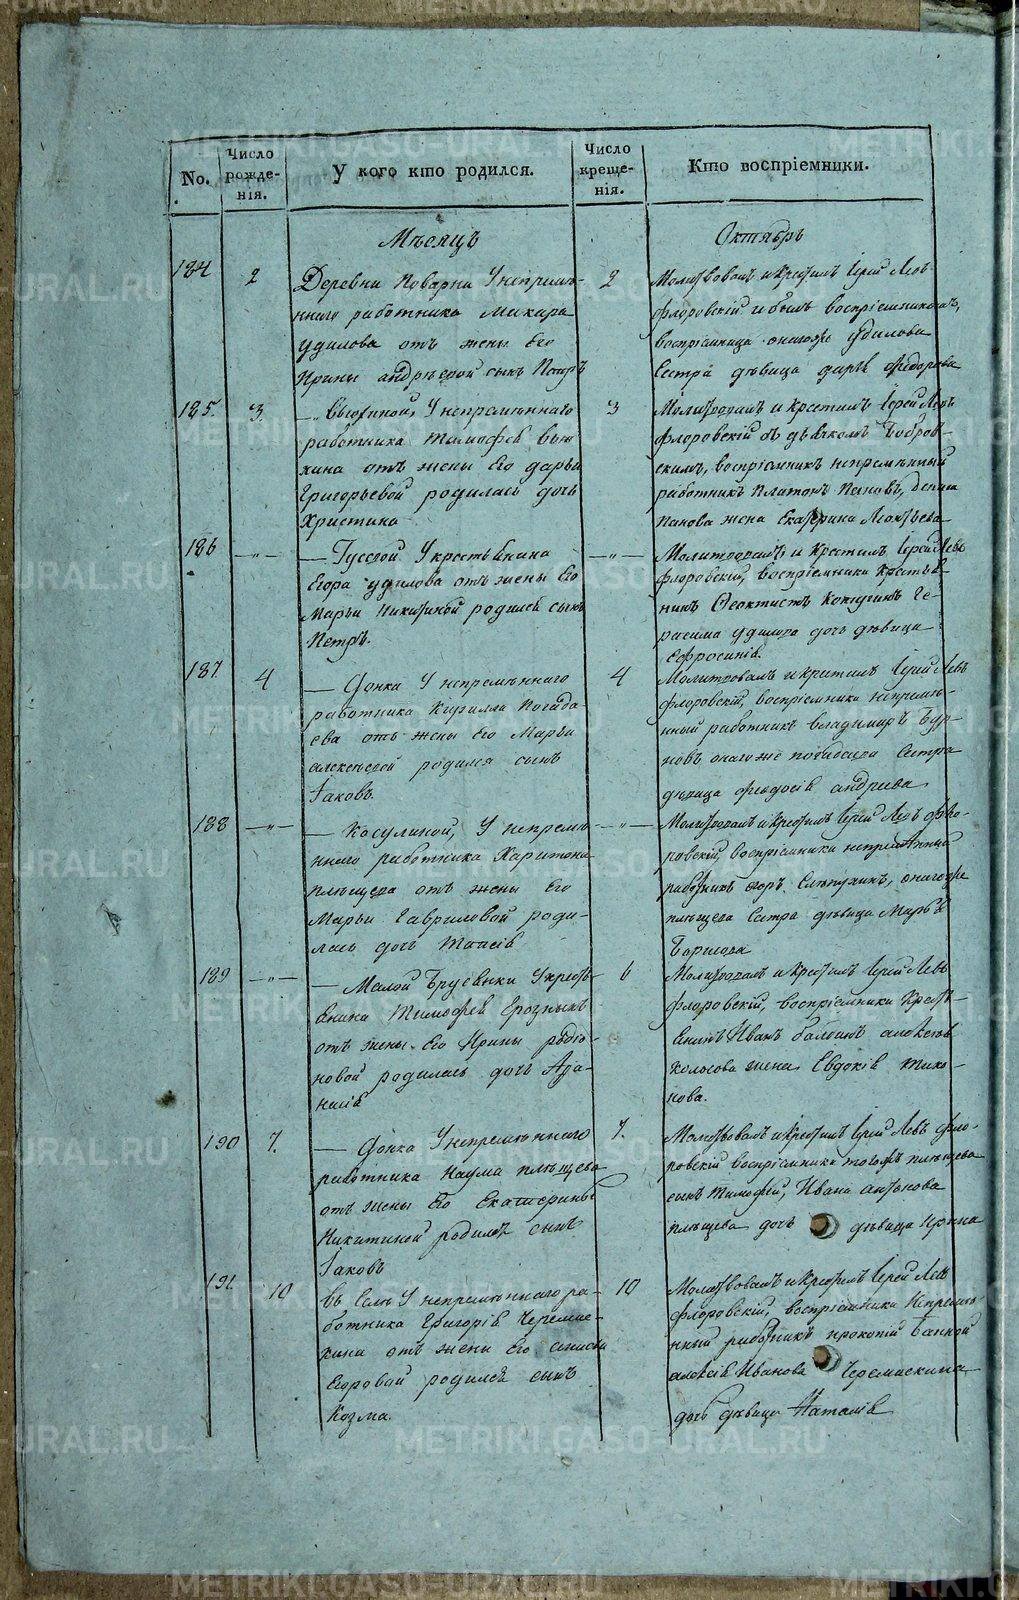 No.
Число рожде-нія.
У кого кто родился.
Число креще-нія.
Кто воспріемники.
Мѣсяцъ
Октябрь
184
2
Деревни Поварни У непремѣ-
ннаго работника Макара
Удилова отъ жены его
Ирины андрѣевой сынъ Петръ
2
Молитвовалъ и крестилъ Іерей Левъ
флоровскій и былъ воспріемникомъ,
воспріемница онагожъ Удилова
Сестра дѣвица дарья Федорова
185.
3.
У непремѣннаго
работника Тимофея Вью
хина отъ жены Его дарьи
Григорьевой родилась дочь
Христина
3
Молитвовалъ и крестилъ Іерей Левъ
флоровскій съ дьячкомъ Бобров-
скимъ, воспріемникъ непремѣнный
работникъ Платонъ Пановъ, дениса
Панова жена Екатерина Леонтьева
186
— „ —
— Гусевой У крестьянина
Егора Удилова отъ жены Его
Марьи Никитиной родился сынъ
Петръ.
— „ —
Молитвовалъ и крестилъ Іерей Левъ
флоровскій, воспріемники крестья-
нинъ Феоктистъ Ге-
расима Удилова дочь дѣвица
Ефросинія.
187
4
— Фонка У непремѣннаго
работника Кирилла Погада
ева отъ жены Его Марьи
алексѣевой родился сынъ
Іаковъ.
4
Молитвовалъ и крестилъ Іерей Левъ
флоровскій, воспріемники непремѣ-
нный работникъ Владимиръ Бур-
новъ онагоже погадаева Сестра
дѣвица феодосія андреева
188
— „ —
— Косулиной, У непремѣ-
ннаго работника Харитона
плѣщева отъ жены Его
Марьи Гавриловой роди-
лась дочь Таисія
— „ —
Молитвовалъ и крестилъ Іерей Левъ фло-
ровскій, воспріемники непремѣнный
работникъ егоръ онагоже
плѣщева Сестра дѣвица Марья
Борисова
189
— „ —
— Малой Брусянки У крестья-
янина Тимофея
отъ жены Его Ирины родіо-
новой родилась дочь Афа-
насія
6
Молитвовалъ и крестилъ Іерей Левъ
флоровскій, воспріемники крестья-
янинъ Иванъ алексѣя
Колосова жена Евдокія тихо-
нова.
190
7.
— Фонка У непремѣннаго
работника Наума плѣщева
отъ жены Его Екатерины
Никитиной родился сынъ
Іаковъ
7.
Молитвовалъ и крестилъ Іерей Левъ фло-
ровскій воспріемники тогожъ плѣщева
сынъ Тимофей, Ивана антонова
плѣщева дочь дѣвица Ирина
191.
10
въ Селѣ У непремѣннаго ра-
ботника Григорія Черемис-
кина отъ жены Его анисьи
Егоровой родился сынъ
Козма.
10
Молитвовалъ и крестилъ Іерей Левъ
флоровскій, воспріемники непремѣ-
нный работникъ прокопій Банной
алексія Иванова Черемискина
дочь дѣвица Наталія
METRIKI.GASO-URAL.RU